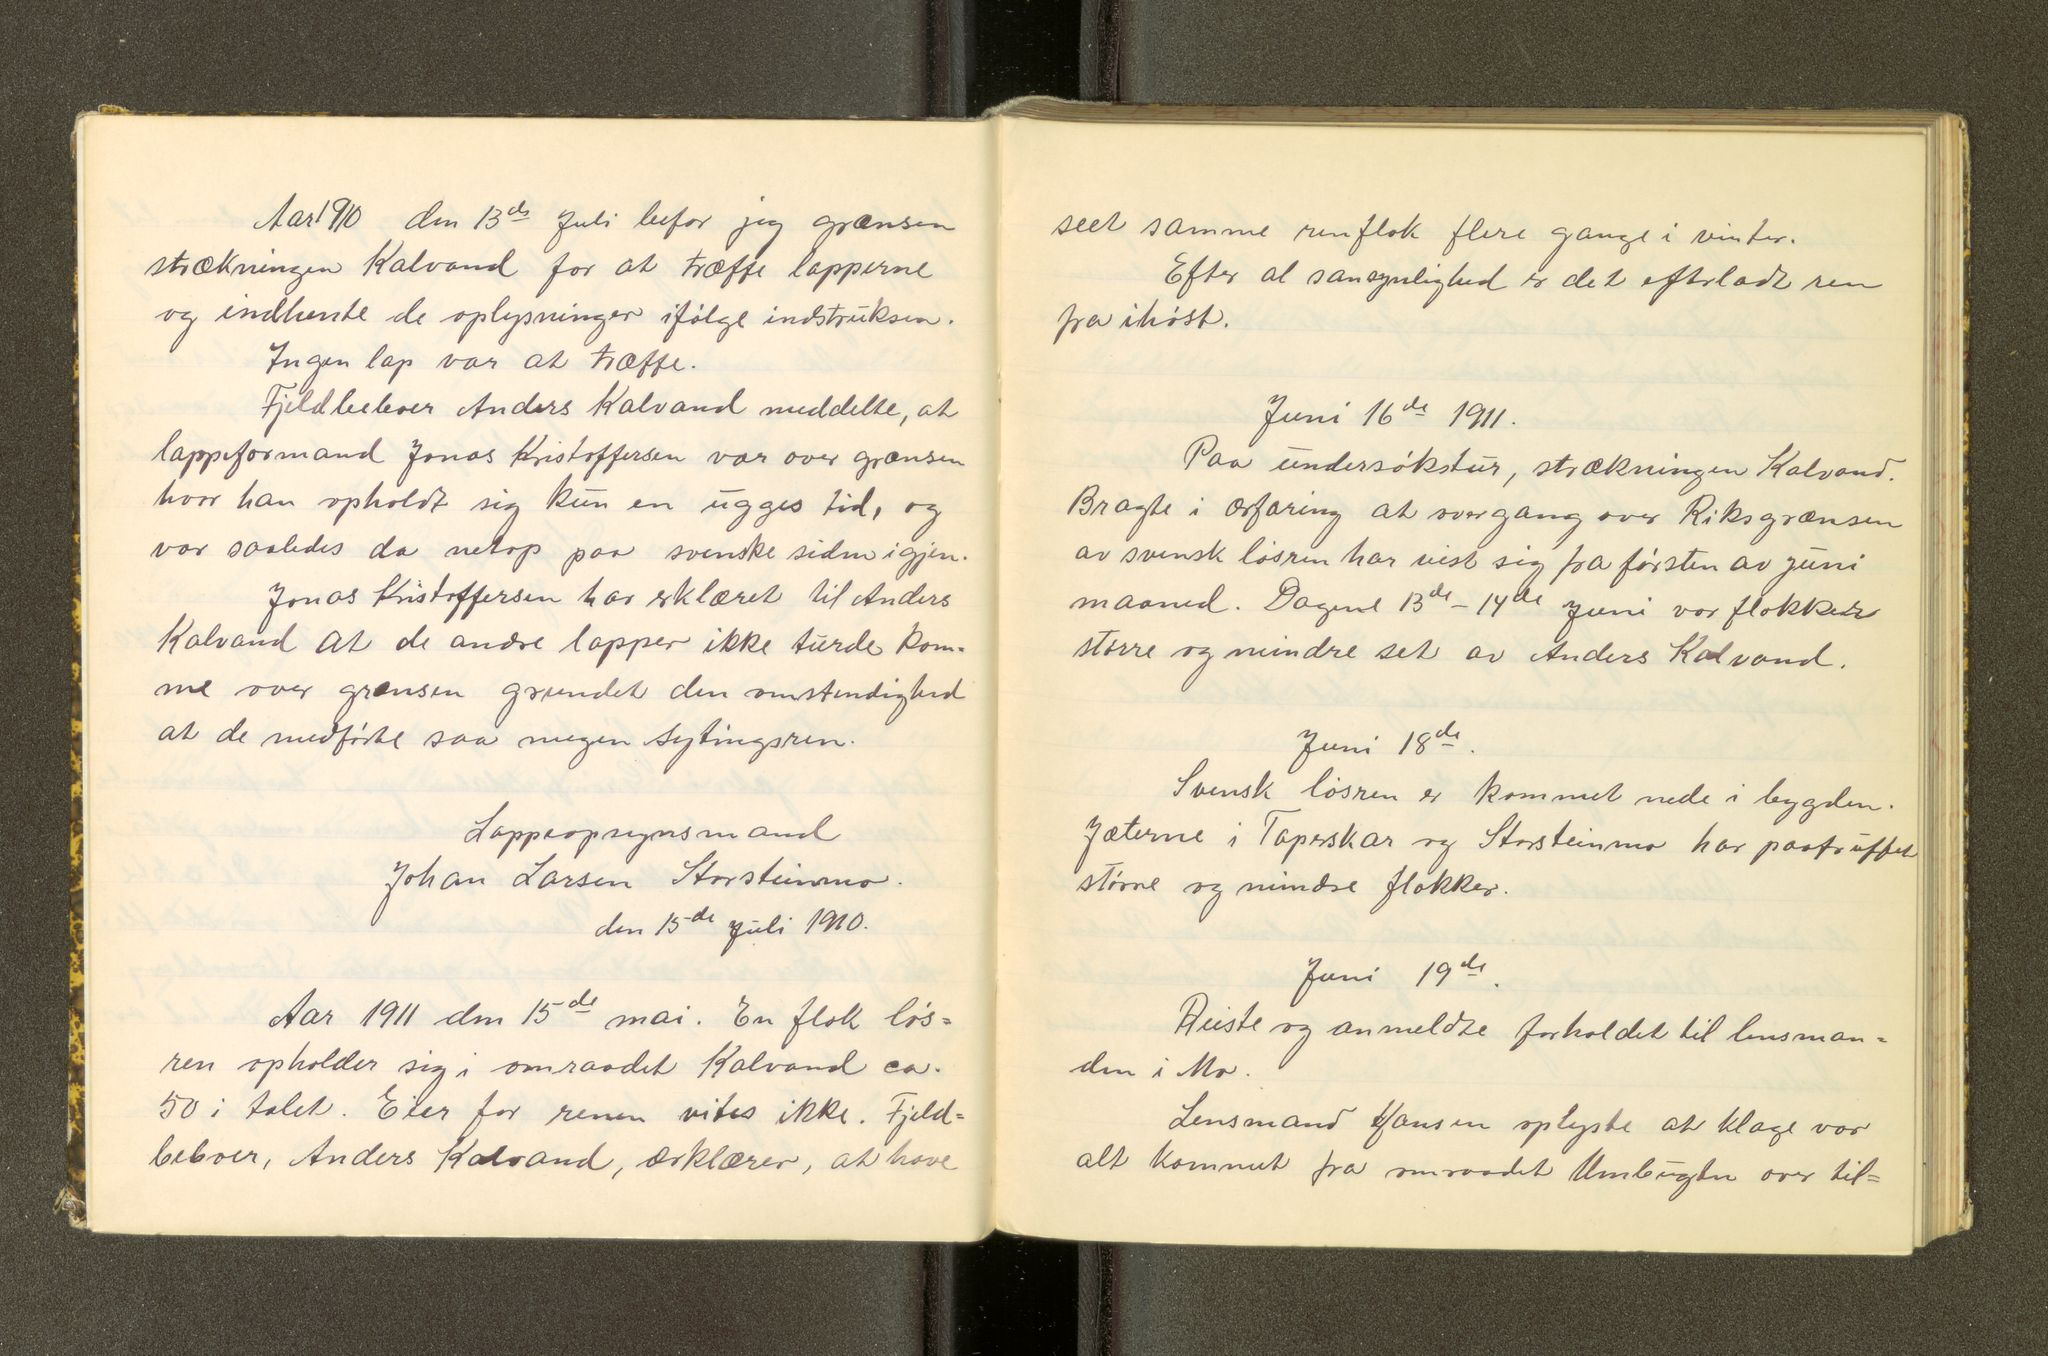 Aar 1910 den 13de Juli befor jeg grænsen
strækningen Kalvand for at træffe lapperne
og indhente de oplysninger ifølge indstruksen.
Ingen lap var at træffe.
Fjeldbeboer Anders Kalvand meddelte, at
lappeformand Jonas Kristoffersen var over grænsen
hvor han opholdt sig kun en ugges tid, og
var saaledes da netop paa svenske siden igjen.
Jonas Kristoffersen har erklæret til Anders
Kalvand at de andre lapper ikke turde kom=
me over grænsen grundet den omstendighed
at de medførte saa megen sytingsren.
Lappeopsynsmand
Johan Larsen Storsteinmo.
den 15de Juli 1910.
Aar 1911 den 15de mai. En flok løs=
ren opholder sig i omraadet Kalvand ca.
50 i talet. Eier for renen vites ikke. Fjeld=
beboer, Anders Kalvand, ærklærer, at have
seet samme renflok flere gange i vinter.
Efter al sansynlighed er det efterladt ren
fra ihøst.
Juni 16de 1911.
Paa undersøkstur, strækningen Kalvand.
Bragte i ærfaring at overgang over Riksgrænsen
av svensk løsren har vist sig fra førsten av juni
maaned. Dagene 13de – 14de Juni var flokker
større og mindre set av Anders Kalvand.
Juni 18de.
Svensk løsren er kommet nede i bygden.
Jæterne i Taperskar og Storsteinmo har paatruffet
større og mindre flokker.
Juni 19de.
Reiste og anmeldte forholdet til lensman=
den i Mo.
Lensmand Hansen oplyste at klage var
alt kommet fra omraadet Umbugten over til=